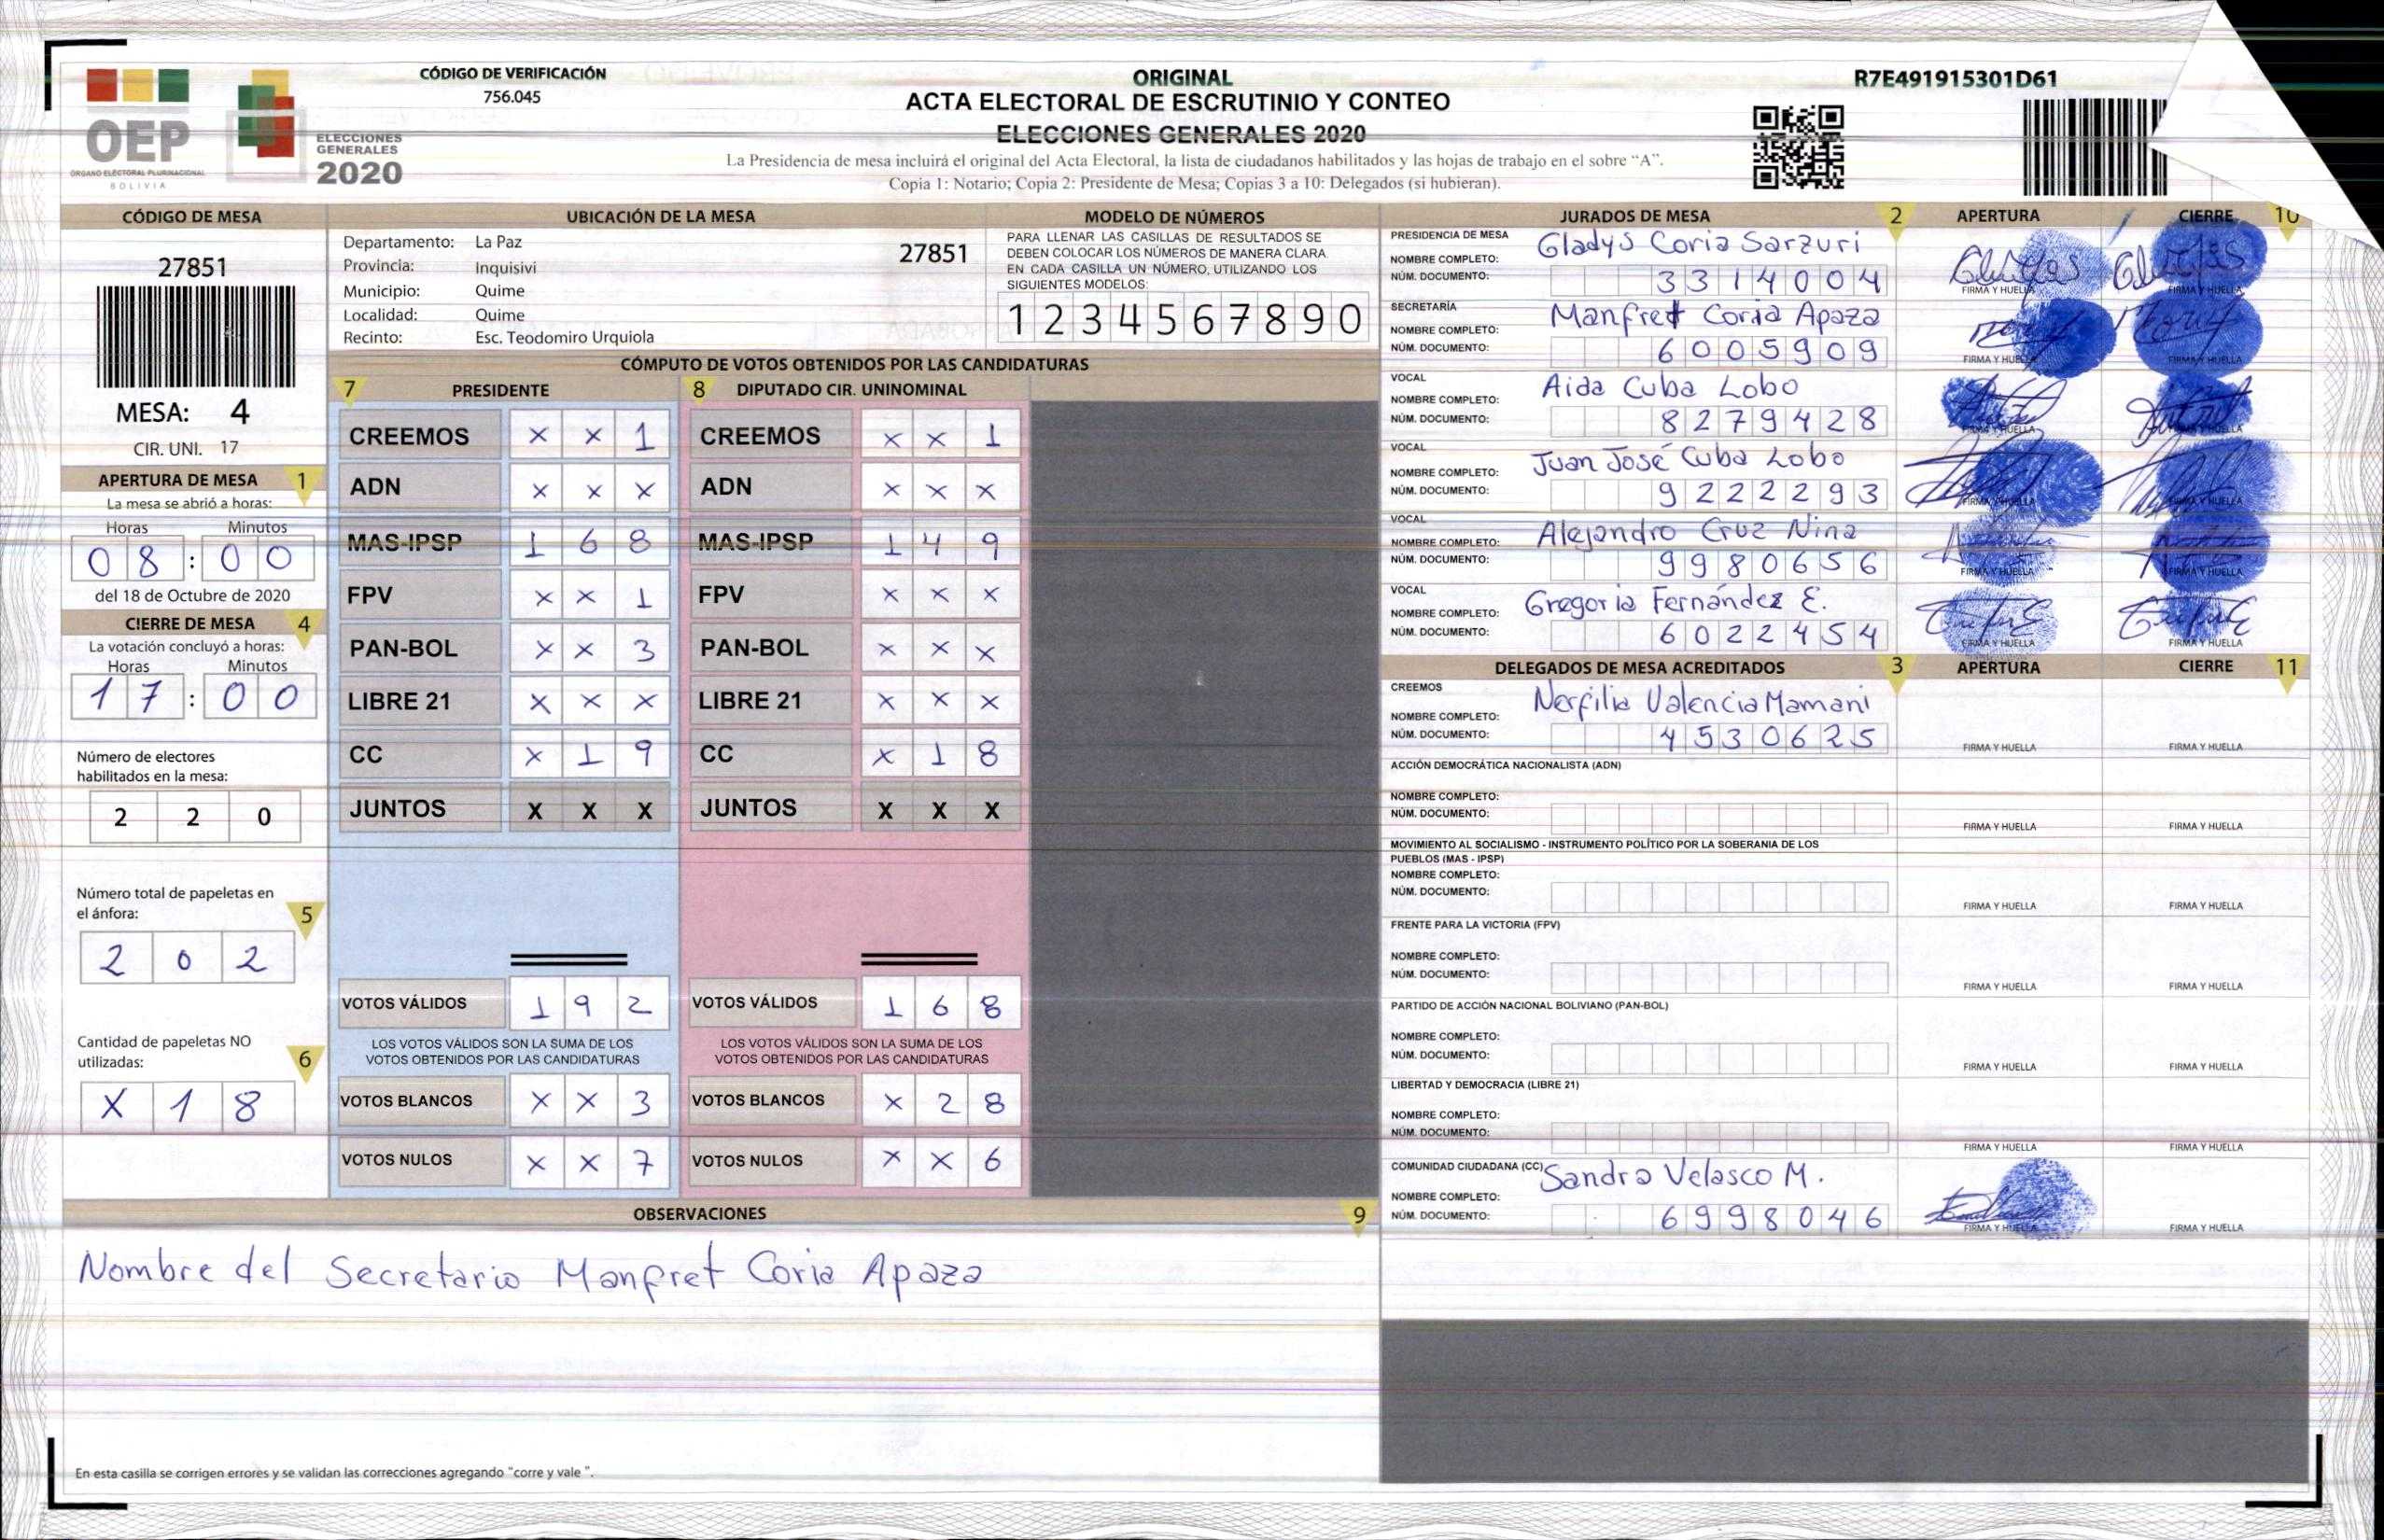 CÓDIGO DE VERIFICACIÓN
756.045
OEP
ÓRGANO ELECTORAL PLURINACIONAL
BOLIVIA
ELECCIONES
GENERALES
2020
ORIGINAL
ACTA ELECTORAL DE ESCRUTINIO Y CONTEO
ELECCIONES GENERALES 2020
La Presidencia de mesa incluirá el original del Acta Electoral, la lista de ciudadanos habilitados y las hojas de trabajo en el sobre “A”.
Copia 1: Notario; Copia 2: Presidente de Mesa; Copias 3 a 10: Delegados (si hubieran).
R7E491915301D61
CÓDIGO DE MESA
27851
MESA: 4
CIR. UNI. 17
APERTURA DE MESA 1
La mesa se abrió a horas:
Horas Minutos
08 : 00
del 18 de Octubre de 2020
CIERRE DE MESA 4
La votación concluyó a horas:
Horas Minutos
17 : 00
Número de electores
habilitados en la mesa:
2 2 0
Número total de papeletas en
el ánfora: 5
2 0 2
Cantidad de papeletas NO
utilizadas: 6
X 1 8
UBICACIÓN DE LA MESA
Departamento: La Paz 27851
Provincia: Inquisivi
Municipio: Quime
Localidad: Quime
Recinto: Esc. Teodomiro Urquiola
MODELO DE NÚMEROS
PARA LLENAR LAS CASILLAS DE RESULTADOS SE
DEBEN COLOCAR LOS NÚMEROS DE MANERA CLARA.
EN CADA CASILLA UN NÚMERO, UTILIZANDO LOS
SIGUIENTES MODELOS:
1 2 3 4 5 6 7 8 9 0
CÓMPUTO DE VOTOS OBTENIDOS POR LAS CANDIDATURAS
7 PRESIDENTE 8 DIPUTADO CIR. UNINOMINAL
CREEMOS X X 1 CREEMOS X X 1
ADN X X X ADN X X X
MAS-IPSP 1 6 8 MAS-IPSP 1 4 9
FPV X X 1 FPV X X X
PAN-BOL X X 3 PAN-BOL X X X
LIBRE 21 X X X LIBRE 21 X X X
CC X 1 9 CC X 1 8
JUNTOS X X X JUNTOS X X X
VOTOS VÁLIDOS 1 9 2 VOTOS VÁLIDOS 1 6 8
LOS VOTOS VÁLIDOS SON LA SUMA DE LOS LOS VOTOS VÁLIDOS SON LA SUMA DE LOS
VOTOS OBTENIDOS POR LAS CANDIDATURAS VOTOS OBTENIDOS POR LAS CANDIDATURAS
VOTOS BLANCOS X X 3 VOTOS BLANCOS X 2 8
VOTOS NULOS X X 7 VOTOS NULOS X X 6
OBSERVACIONES 9
Nombre del Secretario Manfret Coria Apaza
En esta casilla se corrigen errores y se validan las correcciones agregando “corre y vale ”.
JURADOS DE MESA 2 APERTURA CIERRE 10
PRESIDENCIA DE MESA
NOMBRE COMPLETO: Gladys Coria Sarzuri
NÚM. DOCUMENTO: 3314004
FIRMA Y HUELLA FIRMA Y HUELLA
SECRETARÍA
NOMBRE COMPLETO: Manfret Coria Apaza
NÚM. DOCUMENTO: 6005909
FIRMA Y HUELLA FIRMA Y HUELLA
VOCAL
NOMBRE COMPLETO: Aida Cuba Lobo
NÚM. DOCUMENTO: 8279428
FIRMA Y HUELLA FIRMA Y HUELLA
VOCAL
NOMBRE COMPLETO: Juan José Cuba Lobo
NÚM. DOCUMENTO: 9222293
FIRMA Y HUELLA FIRMA Y HUELLA
VOCAL
NOMBRE COMPLETO: Alejandro Cruz Nina
NÚM. DOCUMENTO: 9980656
FIRMA Y HUELLA FIRMA Y HUELLA
VOCAL
NOMBRE COMPLETO: Gregoria Fernández E.
NÚM. DOCUMENTO: 6022454
FIRMA Y HUELLA FIRMA Y HUELLA
DELEGADOS DE MESA ACREDITADOS 3 APERTURA CIERRE 11
CREEMOS
NOMBRE COMPLETO: Nerfilia Valencia Mamani
NÚM. DOCUMENTO: 4530625
FIRMA Y HUELLA FIRMA Y HUELLA
ACCIÓN DEMOCRÁTICA NACIONALISTA (ADN)
NOMBRE COMPLETO:
NÚM. DOCUMENTO:
FIRMA Y HUELLA FIRMA Y HUELLA
MOVIMIENTO AL SOCIALISMO - INSTRUMENTO POLÍTICO POR LA SOBERANIA DE LOS
PUEBLOS (MAS - IPSP)
NOMBRE COMPLETO:
NÚM. DOCUMENTO:
FIRMA Y HUELLA FIRMA Y HUELLA
FRENTE PARA LA VICTORIA (FPV)
NOMBRE COMPLETO:
NÚM. DOCUMENTO:
FIRMA Y HUELLA FIRMA Y HUELLA
PARTIDO DE ACCIÓN NACIONAL BOLIVIANO (PAN-BOL)
NOMBRE COMPLETO:
NÚM. DOCUMENTO:
FIRMA Y HUELLA FIRMA Y HUELLA
LIBERTAD Y DEMOCRACIA (LIBRE 21)
NOMBRE COMPLETO:
NÚM. DOCUMENTO:
FIRMA Y HUELLA FIRMA Y HUELLA
COMUNIDAD CIUDADANA (CC)
NOMBRE COMPLETO: Sandra Velasco M.
NÚM. DOCUMENTO: 6998046
FIRMA Y HUELLA FIRMA Y HUELLA